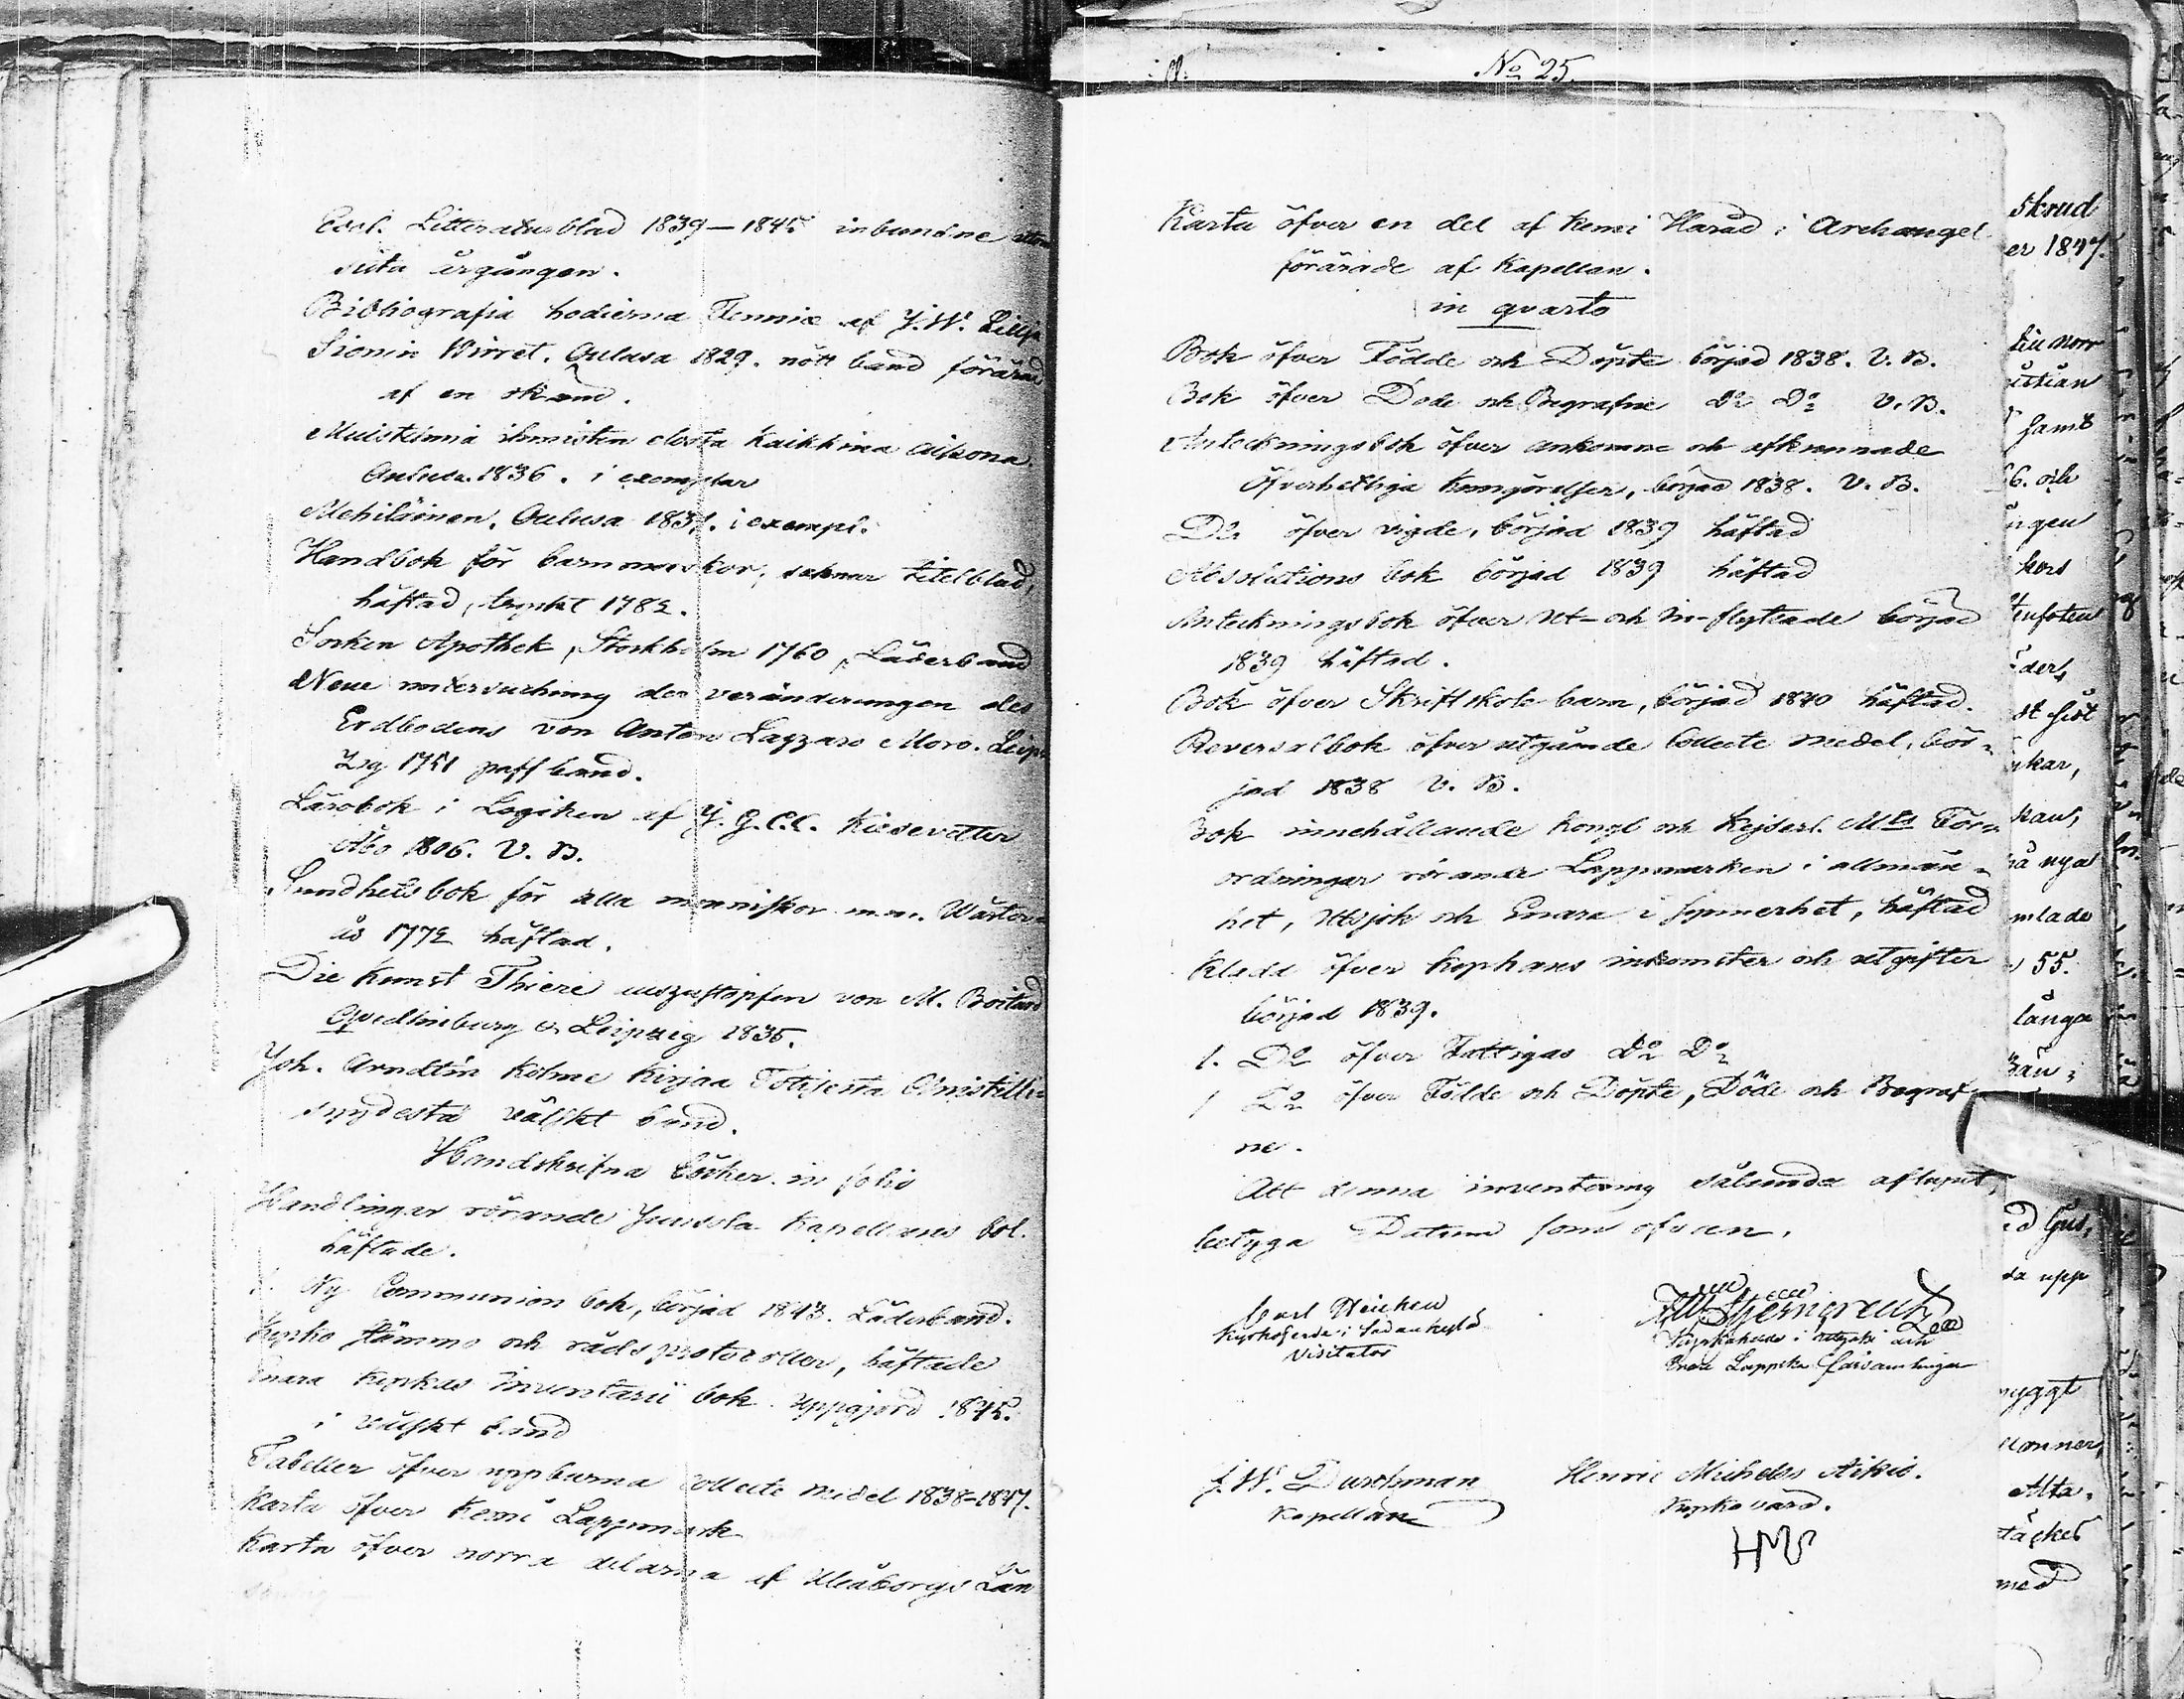 Eccl. Litteraturblad 1839–1845 inbundne utom
sista årgången.
Bibliografia hodierna Fenniæ af J. W. Lillja
Sionin Wirret. Oulusa 1829. nött band förärad
af en okänd.
Muistelmia ihmisten elosta kaikkina aikona
Oulusa 1836. i exemplar
Mehiläinen. Oulusa 1837. i exempl.
Handbok för barnmorskor, saknar titelblad,
häftad, tryckt 1782.
Socken Apothek, Stockholm 1760, Läderband
Neue untersuchung der veränderungen des
Erdbodens von Anton Lazzaro Moro. Leip-
zig 1751 paffband.
Lärobok i Logiken af J. G. C. C. Kiesevetter
Åbo 1806. V. B.
Sundhets bok för alla menniskor m.m. Wäster-
ås 1772 häftad.
Die Kunst Thiere auszustopfen von M. Boitard
Quedlinburg & Leipzig 1835.
Joh. Arndtin Kolme Kirjaa Totisesta Christilli-
syydestä välskt band.
Handskrifna böcker in folio
Handlingar rörande Kapellanes bol.
häftade.
1. Ny Communion bok, börjad 1843. Läderband.
Kyrko stämmo och råds protocoller, häftade
Enara Kyrkas Inventarii bok uppgjord 1845.
i välskt band
Tabeller öfver uppburna Collecte medel 1838–1847.
Karta öfver Kemi Lappmark
Karta öfver norra delarna af Uleåborgs Län
No 25.
Karta öfver en del af Kemi Härad i Archangel
förärade af Kapellan.
in qvarto
Bok öfver Födde och Döpte börjad 1838. V. B.
Bok öfver Döde och Begrafne do Do V. B.
Anteckningsbok öfver ankomne och afkunnade
Öfverhetliga kungörelser, börjad 1838. V. B.
Do öfver vigde, börjad 1839 häftad
Absolutions bok börjad 1839 häftad
Anteckningsbok öfver Ut- och In-flyttade börjad
1839 häftad.
Bok öfver Skriftskole barn, börjad 1840 häftad.
Reversalbok öfver utgående Collecte medel, bör-
jad 1838 V. B.
Bok innehållande Kongl och Kejserl. Mts För-
ordningar rörande Lappmarken i allmän-
het, Utsjok och Enara i synnerhet, häftad
Kladd öfver Kyrkans inkomster och utgifter
börjad 1839.
1. Do öfver Fattigas do Do
1 Do öfver Födde och Döpte, Döde och Begraf-
ne.
Att denna inventering sålunda aflupit,
betyga Datum som ofvan.
Carl Heickell
Kyrkoherde i Sodankylä
Visitator
Stjerncreutz
Kyrkoherde i Utsjoki och
Enare Lappska församlingar
J. W. Durchman
Kapellan
Henric Michelss Aikio.
Kyrkovärd.
HMS
skrud
er 1847.
samt
och
kors
ders
kar,
nya
mlade
55.
långa
ljus,
upp
yggt
Alta-
täcket
med